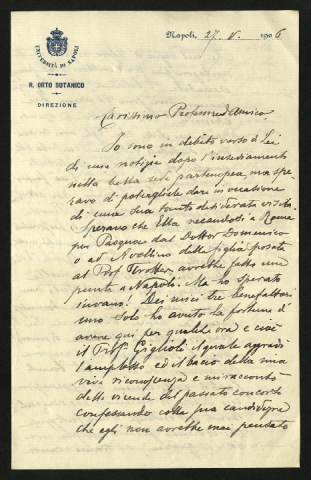 UNIVERSITÀ DI NAPOLI
R. ORTO BOTANICO
DIREZIONE
Napoli, 27. V. 1906
Carissimo Professore ed Amico,
Io sono in debito verso di Lei
di sue notizie dopo l'insediamento
nella bella sede partenopea, ma spe-
ravo di potergliele dare in occasione
di una Sua tanto desiderata visita.
Speravo che Ella recandosi a Roma
per Pasqua dal Dottor Domenico
o ad Avellino dalla figlia sposata
al Prof. Trotter, avrebbe fatto una
punta a Napoli. Ma ho sperato
invano! Dei miei tre benefattori
uno solo ho avuto la fortuna di
avere qui per qualche ora e cioè
il Prof. Giglioli il quale aggradì
l'amplesso ed il bacio della mia
viva riconoscenza e mi raccontò
delle vicende del passato concorso
confessando colla sua candidezza
che egli non avrebbe mai pensato